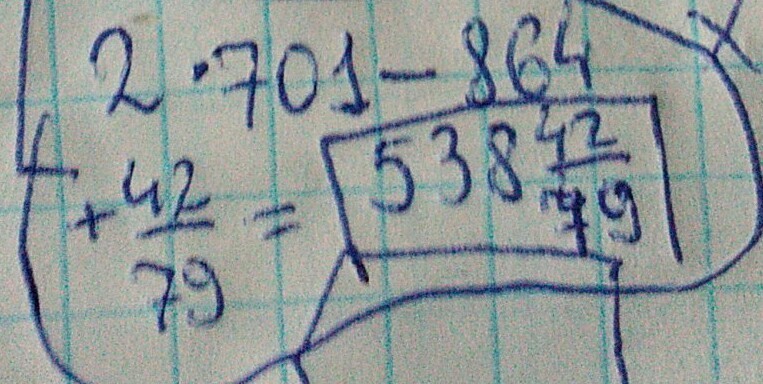 2·701-864
+42/79=538 42/79